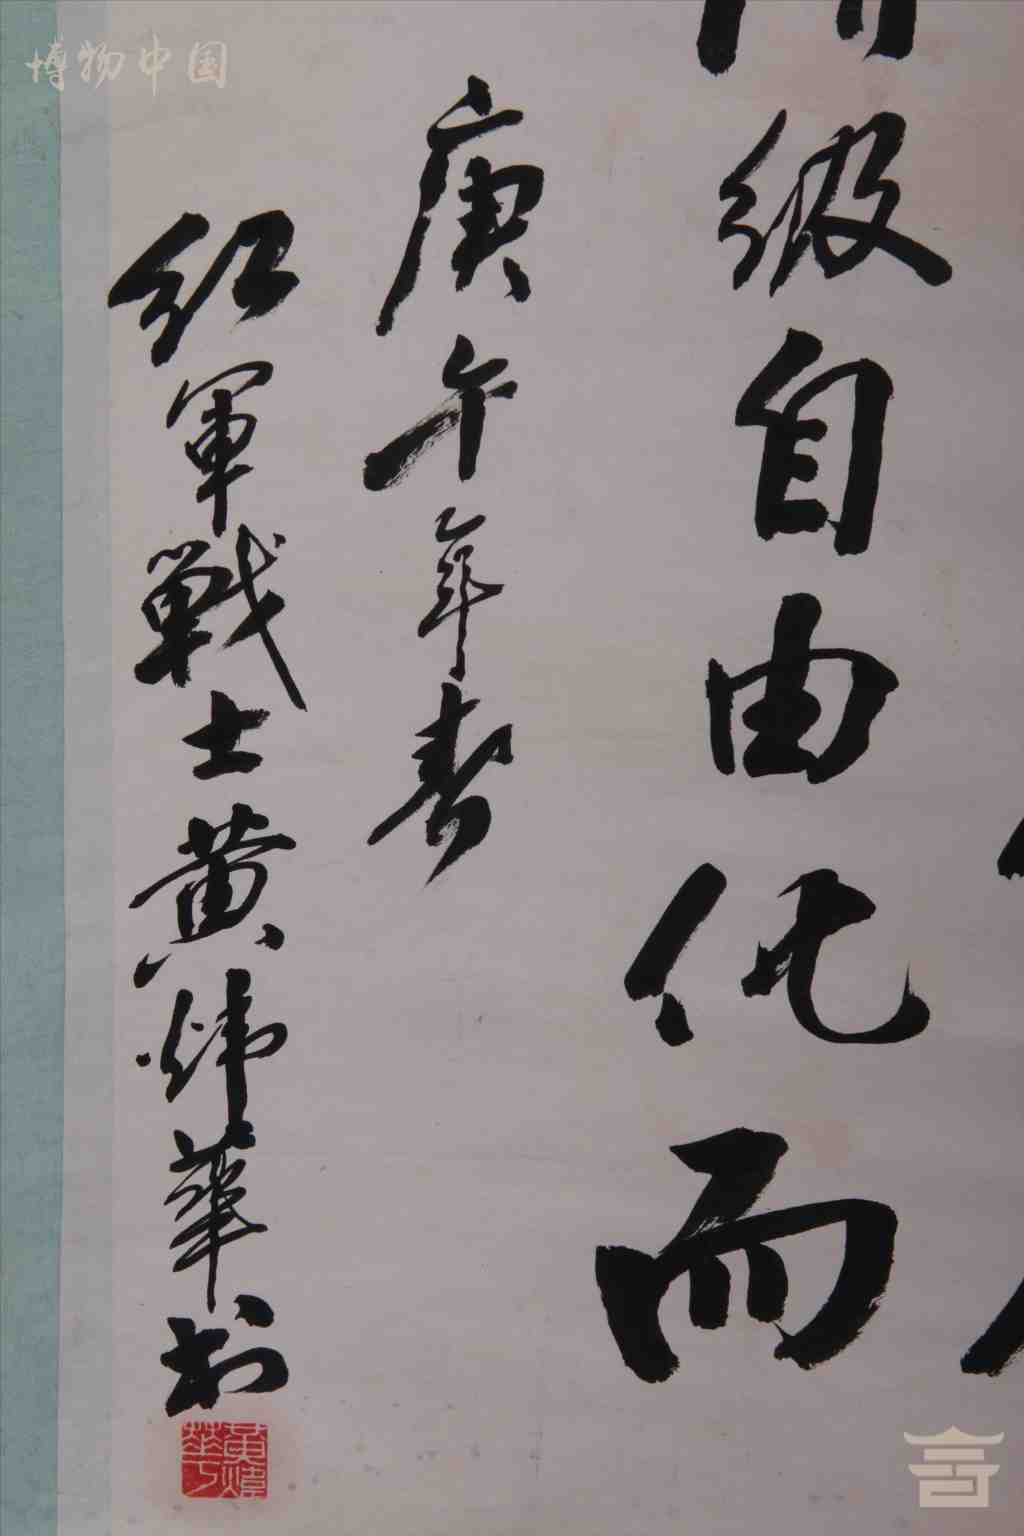 博物中国
级自由化而
庚午年春
红軍戰士黄炜華书